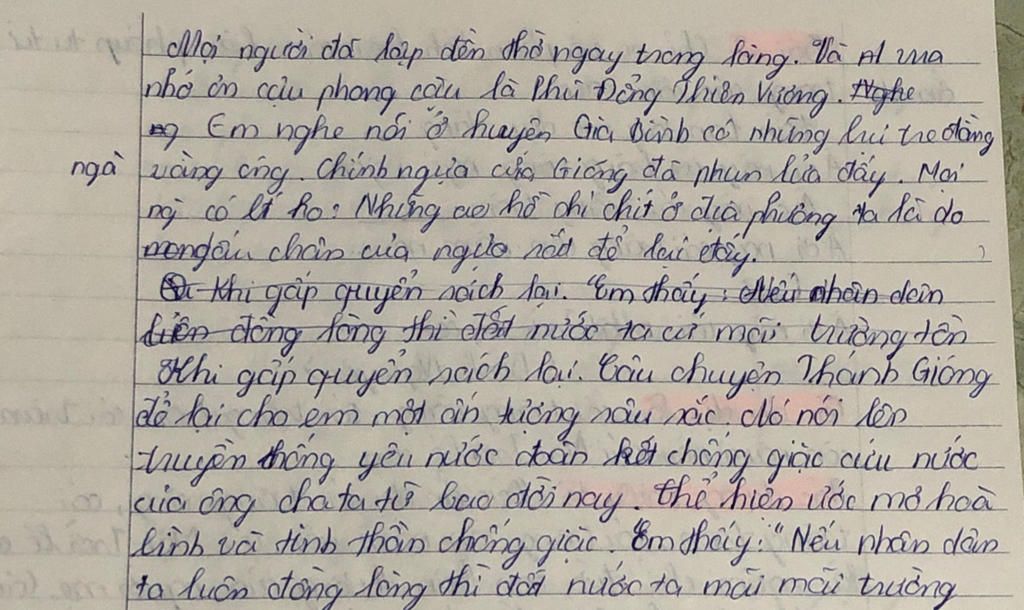 Mọi người đã lập đền thờ ngay trong làng. Và
nhớ ơn cậu phong cậu là Phù Đổng Thiên Vương. Nghe
ng Em nghe nói ở huyện Gia Bình có những bụi tre đằng
ngà vàng óng. Chính ngựa của Gióng đã phun lửa đấy. Mọi
ng có lẽ ho: Những ao hồ chi chít ở địa phương ta là do
dấu chân của ngựa sắt để lại đấy.
Khi gấp quyển sách lại. Em thấy: Nếu nhân dân
đồng lòng thì đất nước ta cứ mãi trường tồn
Khi gấp quyển sách lại. Câu chuyện Thánh Gióng
để lại cho em một ấn tượng sâu sắc. Nó nói lên
truyền thống yêu nước đoàn kết chống giặc cứu nước
của ông cha ta từ bao đời nay. thể hiện ước mơ hoà
bình và tinh thần chống giặc. Em thấy: "Nếu nhân dân
ta luôn đồng lòng thì đất nước ta mãi mãi trường